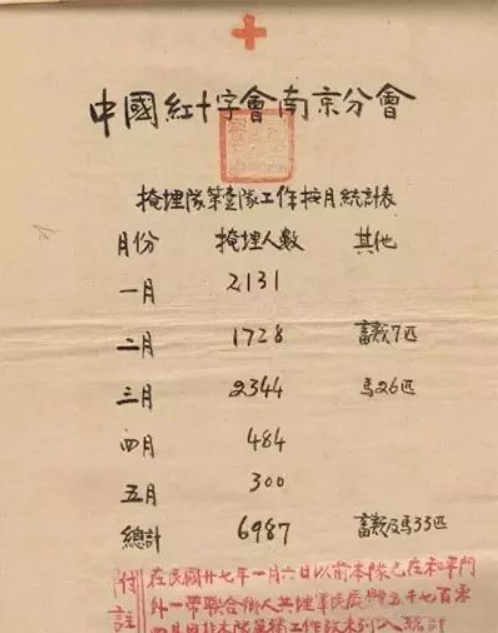 中國紅十字會南京分會
掩埋隊第壹隊工作按月統計表
月份 掩埋人數 其他
一月 2131
二月 1728 畜類7匹
三月 2344 馬26匹
四月 484
五月 300
總計 6987 畜類及馬33匹
附註 在民國廿七年一月六日以前本隊已在和平門
外一帶聯合鄉人共埋軍民屍體五千七百零